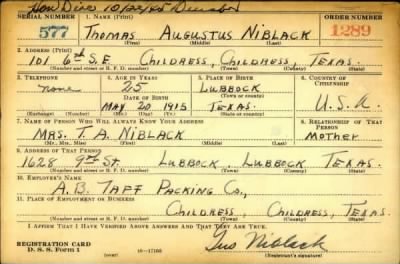 Hon Disc 10/22/45 Deceased
SERIAL NUMBER 1. NAME (Print) ORDER NUMBER
577 THOMAS AUGUSTUS NIBLACK 1289
(First) (Middle) (Last)
2. ADDRESS (Print)
101 6th S.E. CHILDRESS, CHILDRESS, TEXAS.
(Number and street or R. F. D. number) (Town) (County) (State)
3. TELEPHONE 4. AGE IN YEARS 5. PLACE OF BIRTH 6. COUNTRY OF CITIZENSHIP
none 25 LUBBOCK
DATE OF BIRTH
MAY 20 1915 TEXAS. U.S.A.
(Exchange) (Number) (Mo.) (Day) (Yr.) (State or country)
7. NAME OF PERSON WHO WILL ALWAYS KNOW YOUR ADDRESS 8. RELATIONSHIP OF THAT PERSON
MRS. T. A. NIBLACK MOTHER
(Mr., Mrs., Miss) (First) (Middle) (Last)
9. ADDRESS OF THAT PERSON
1628 9TH ST. LUBBOCK, LUBBOCK TEXAS.
(Number and street or R. F. D. number) (Town) (County) (State)
10. EMPLOYER'S NAME
A.B. TAFF PACKING CO.,
11. PLACE OF EMPLOYMENT OR BUSINESS
CHILDRESS, CHILDRESS, TEXAS.
(Number and street or R. F. D. number) (Town) (County) (State)
I AFFIRM THAT I HAVE VERIFIED ABOVE ANSWERS AND THAT THEY ARE TRUE.
REGISTRATION CARD
D. S. S. Form 1 (over) 16—17105 Gus Niblack
(Registrant's signature)